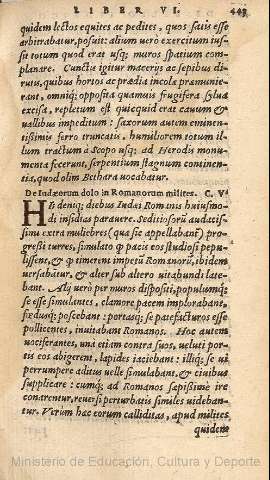 LIBER VI. 443
quidem lectos equites ac pedites, quos satis esse
arbitrabatur, posuit: alium uerò exercitum ius-
sit totum quod erat usq; muros spatium com-
planare. Cunctis igitur macerijs ac sepibus di-
rutis, quibus hortos ac prædia incolæ præmunie-
rant, omniq; opposita quamuis frugifera sylua
excisa, repletum est quicquid erat cauum &
uallibus impeditum: saxorum autem eminen-
tissimis ferro truncatis, humiliorem totum il-
lum tractum à Scopo usq; ad Herodis monu-
menta fecerunt, serpentium stagnum continen-
tia, quod olim Bethara uocabatur.
De Iudæorum dolo in Romanorum milites. C. V.
HIs deniq; diebus Iudæi Romanis huiusmo-
di insidias parauere. Seditiosorũ audacis-
simi extra muliebres (quas sic appellabant)
gressi turres, simulato ꝙ pacis eos studiosi pepu-
lissent, & ꝙ timerent impetũ Romanorũ, ibidem
uersabatur, & alter sub altero uitabundi late-
bant. Alij uerò per muros dispositi, populumq;
se esse simulantes, clamore pacem implorabant,
fœdusq; poscebant: portasq; se patefacturos esse
pollicentes, inuitabant Romanos. Hoc autem
uociferantes, unà etiam contra suos, ueluti por-
tis eos abigerent, lapides iaciebant: illiq; se ui
perrumpere aditus uelle simulabant, & ciuibus
supplicare: cumq; ad Romanos sæpissimè ire
conarentur, reuersi perturbatis similes videban-
tur. Verum hac eorum calliditas, apud milites
quidem
Ministerio de Educación, Cultura y Deporte